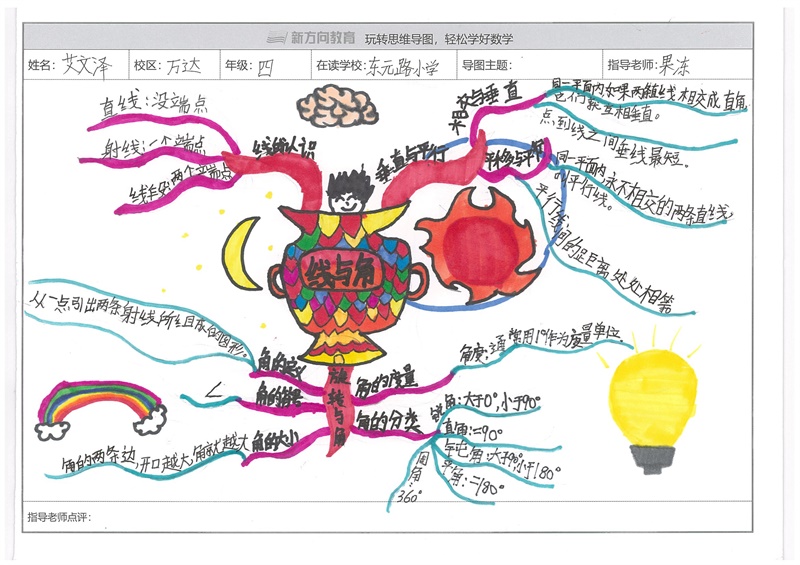 新方向教育 玩转思维导图，轻松学好数学
姓名：艾文泽 校区：万达 年级：四 在读学校：东元路小学 导图主题： 指导老师：果冻
线与角
线的认识
直线：没端点
射线：一个端点
线段：两个端点
垂直与平行
相交与垂直
同一平面内如果两条直线相交成直角
它们就互相垂直。
点到线之间垂线最短。
平移与平行
同一平面内永不相交的两条直线
叫平行线。
平行线间的距离处处相等
旋转与角
角的定义
从一点引出两条射线所组成的图形。
角的符号
∠
角的大小
角的两条边，开口越大，角就越大
角的度量
角度：通常用1°作为度量单位.
角的分类
锐角：大于0°,小于90°
直角：=90°
钝角：大于90°,小于180°
平角：=180°
周角：360°
指导老师点评：